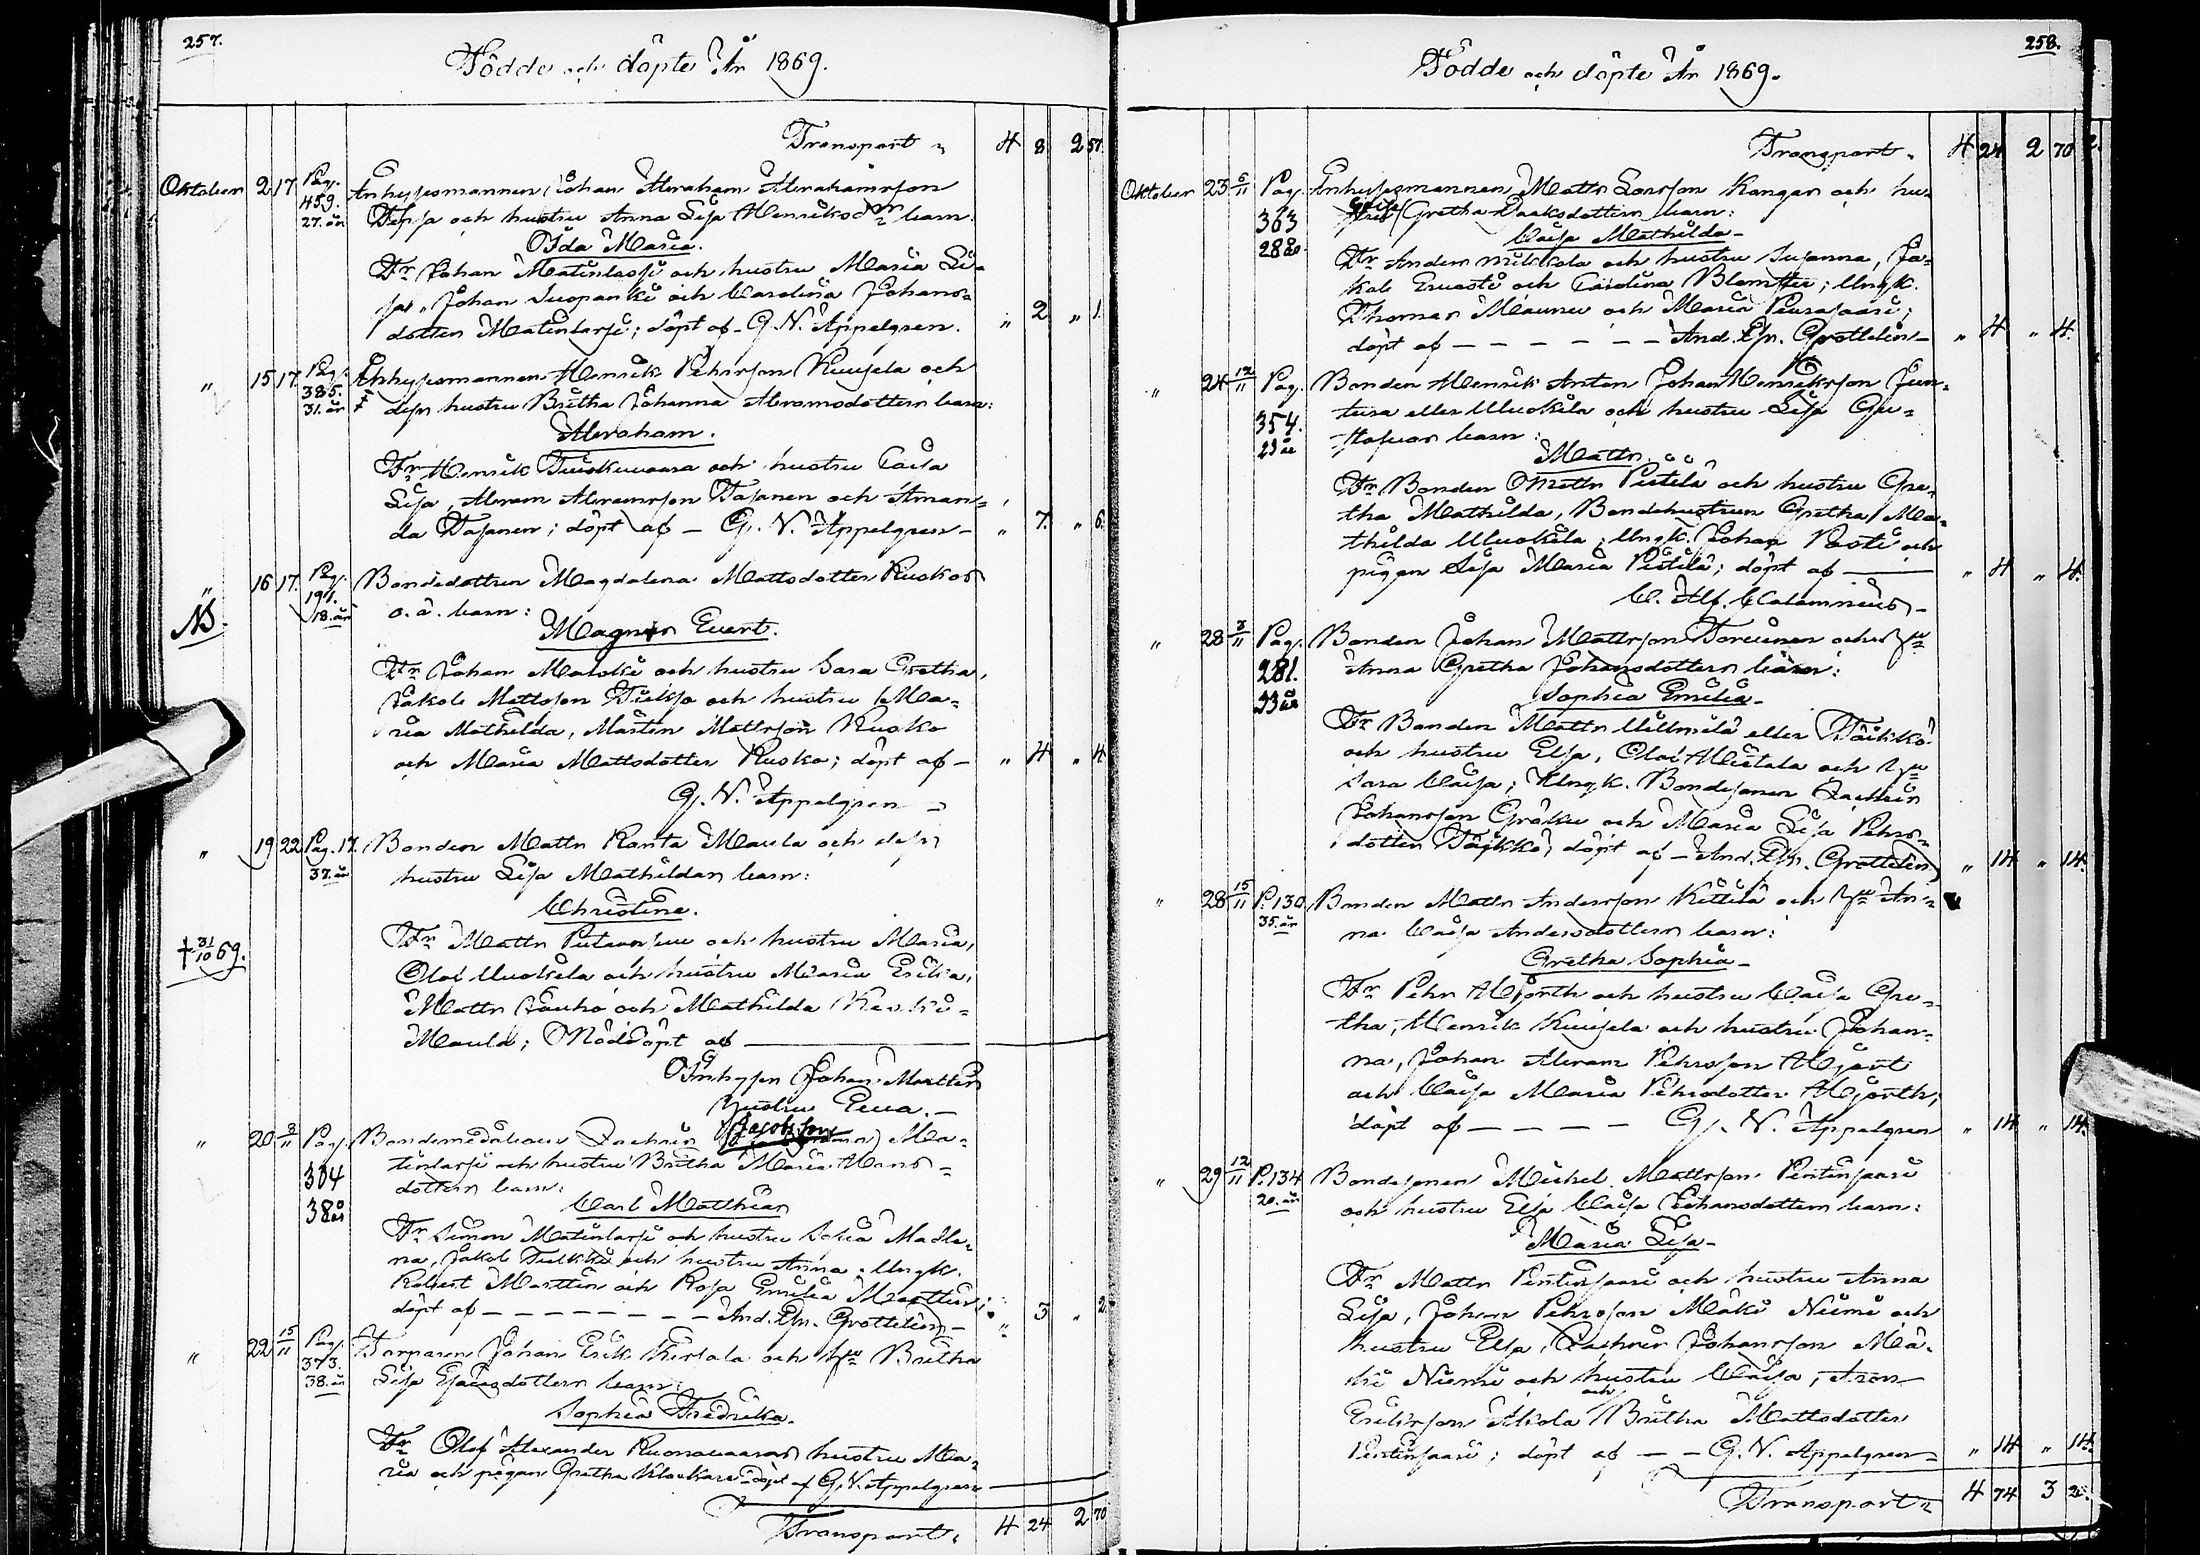 257.
Födde och döpte År 1869.
Transport " 4 8 2 57.
Oktober 2 17 Pag. 459. 27. år Inhysesmannen Johan Abraham Abrahamsson
och hustru Anna Lisa Henriksd:rs barn:
Ida Maria.
Fr Johan Matinlassi och hustru Maria Li-
sa, Johan Suopanki och Carolina Johans-
dotter Matinlassi; döpt af G. N. Appelgren. " 2 " 1.
" 15 17. Pag. 385. 31. år Inhysesmannen Henrik Pehrsson Kuusela och
dess hustru Britha Johanna Abramsdotters barn:
Abraham.
Fr Henrik och hustru Caisa
Lisa, Abram Abramsson och Aman-
da; döpt af – G. N. Appelgren – " 7. " 6.
" 16 17. Pag. 191. 18. år Bondedottren Magdalena Mattsdotter Ruskos
NB. o. ä. barn:
Magnus Evert.
Fr Johan och hustru Sara Gretha,
Jakob Mattsson och hustru Ma-
ria Mathilda, Mårten Mattsson Rusko
och Maria Mattsdotter Rusko; döpt af – " 4 " 4.
G. N. Appelgren –
" 19 22 Pag. 17. 37. år Bonden Matts Ranta Maula och dess
hustru Lisa Mathildas barn:
Christine.
† 31/10 69. Fr Matts och hustru Maria,
Olof Uuokila och hustru Maria Erika,
Matts och Mathilda
Maula; Nöddöpt af
Inhyses Johan Marttis
hustru Eeva. –
" 20 3/11 Pag. 304 38 år Bonden Zachris Jacobsson Ma-
tinlassi och hustru Britha Maria Hans-
dotters barn:
Carl Matthias
Fr Simon Matinlassi och hustru Sofia Madle-
na, Jakob och hustru Anna; Ungk.
Robert Marttin och Rosa Emilia Marttin;
döpt af – – – – – – And. Efr. Grottelin – " 3 " 2.
" 22 15/11 Pag. 373. 38. år Torparen Johan Erik och hu Britha
Lisa Esaiasdotters barn:
Sophia Fredrika.
Fr Olof Alexander hustru Ma-
ria och pigan Gretha döpt af G. N. Appelgren
Transport. 4 24 2 70
258.
Födde och döpte År 1869.
Transport. 4 24 2 70
Oktober 23 6/11 Pag. 363 28 år Inhysesmannen Matts Larsson Kangas och hu-
stru Gretha Isaksdotters barn:
Caisa Mathilda –
Fr Anders Mikkola och hustru Susanna, Ja-
kob och Carolina; Ungk.
Thomas Maunu och Maria Peurasaari;
döpt af – – – – – – And. Efr. Grottelin – " 4 " 4.
" 24 12/11 Pag. 354. 29 år Bonden Henrik Anton Johan Henriksson Jun-
tura eller Uuokila och hustru Lisa Gu-
stafvas barn:
Matts.
Fr Bonden Matts Pietilä och hustru Gre-
tha Mathilda, Bondehustrun Gretha Ma-
thilda Uuokila; Ungk. Johan och
pigan Lisa Maria Pietilä; döpt af " 4 " 4.
C. Alf. Calamnius –
" 28 3/11 Pag. 281. 33 år Bonden Johan Mattsson Torvinen och hu
Anna Gretha Johansdotters barn:
Sophia Emilia –
Fr Bonden Matts eller
och hustru Elsa, Olof Alatala och hu
Sara Caisa; Ungk. Bondesonen Zachris
Johansson och Maria Lisa Pehrs-
dotter; döpt af – And. Efr. Grottelin " 14 " 14.
" 28 15/11 P. 130 35. år Bonden Matts Andersson Kittilä och hu An-
na Caisa Andersdotters barn:
Gretha Sophia –
Fr Pehr Hjorth och hustru Caisa Gre-
tha, Henrik Kuusela och hustru Johan-
na, Johan Abram Pehrsson Hjort
och Caisa Maria Pehrsdotter Hjorth;
döpt af – – – – G. N. Appelgren " 14 " 14.
" 29 12/11 P. 134 20. år Bondesonen Michel Mattsson Pentinsaari
och hustru Elsa Caisa Johansdotters barn:
Maria Lisa –
Fr Matts Pentinsaari och hustru Anna
Lisa, Johan Pehrsson Mäki Niemi och
hustru Elsa, Zachris Johansson Mä-
ki Niemi och hustru Caisa, Aron
Eriksson Alkola och Britha Mattsdotter
Pentinsaari; döpt af – – G. N. Appelgren – " 14 " 14.
Transport 4 74 3 20.